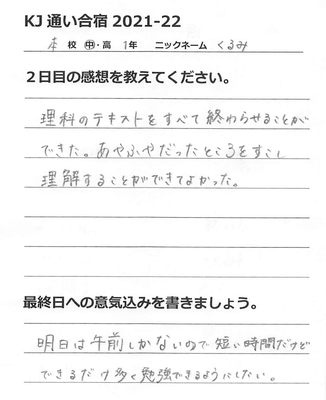 KJ 通い合宿 2021-22
本 校 中・高 1年 ニックネーム くるみ
2日目の感想を教えてください。
理科のテキストをすべて終わらせることが
できた。あやふやだったところをすこし
理解することができてよかった。
最終日への意気込みを書きましょう。
明日は午前しかないので短い時間だけど
できるだけ多く勉強できるようにしたい。